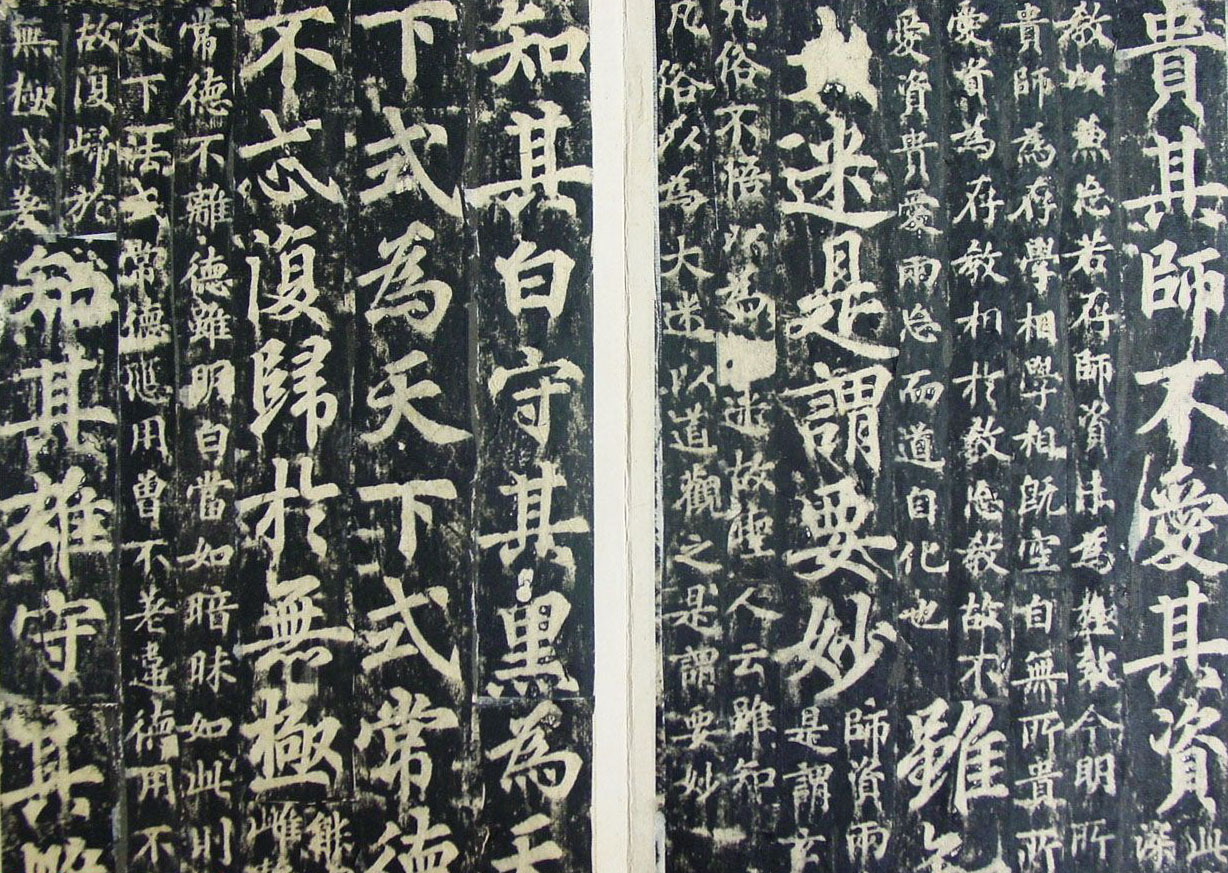 貴其師不愛其資
此
深
教以兼忘若存師資未為極致今明所
貴師為存學相學相既空自無所貴所
愛資為存教相於教忘教故不
愛資貴愛兩忘而道自化也
雖知
迷是謂要妙
師資兩
是謂玄
凡俗不悟將為迷故聖人云雖知
凡俗以為大迷以道觀之是謂要妙
知其白守其黑為天
下式為天下式常德
不忒復歸於無極
能
雖
常德不離德雖明白當如暗昧如此則
天下 常德應用曾不差違德用不
故復歸於
無極忒差
知其雄守其雌